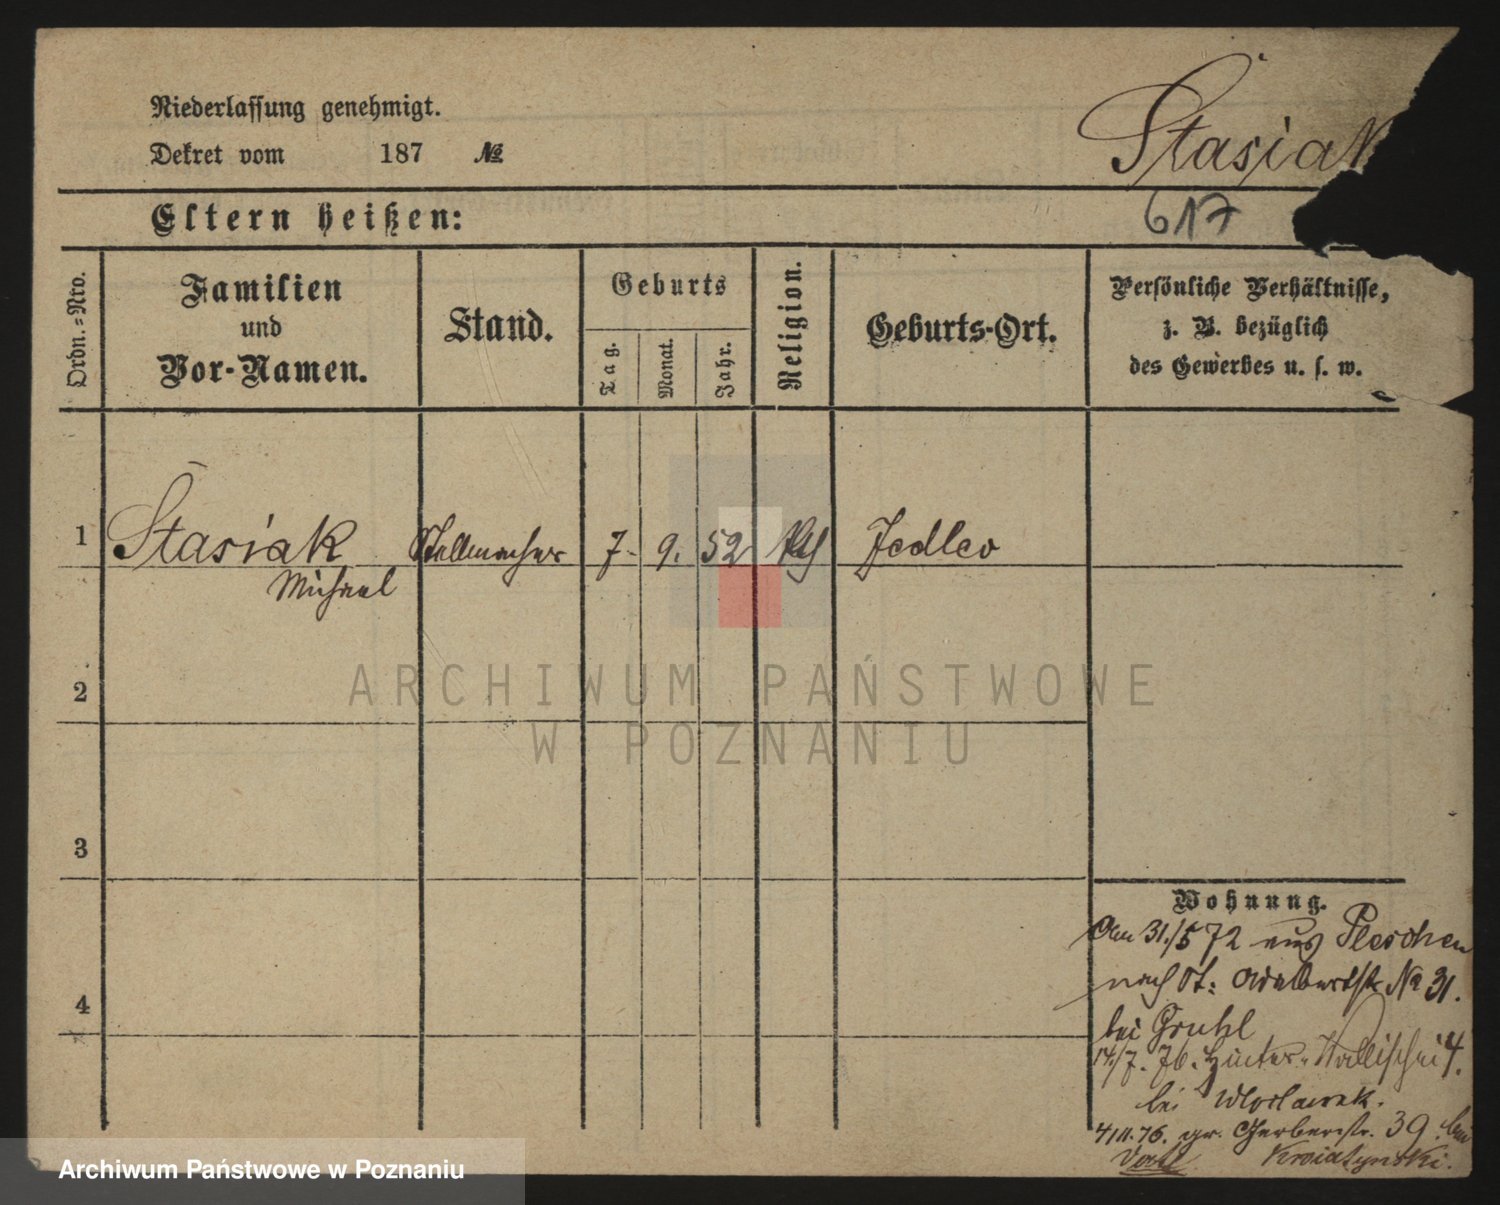 Niederlassung genehmigt.
Dekret vom 187 №
Stasiak
617
Eltern heißen:
Ordn.-Nro.
Familien
und
Vor-Namen.
Stand.
Geburts
Tag.
Monat.
Jahr.
Religion.
Geburts-Ort.
Persönliche Verhältnisse,
z. B. bezüglich
des Gewerbes u. s. w.
1 Stasiak Stellmacher 7. 9. 52 kth Jedlec
Michael
2
ARCHIWUM PAŃSTWOWE
W POZNANIU
3
Wohnung.
Am 31./5 72 aus Pleschen
nach St: Adalbertstr № 31.
4
bei Gruhl
14/7. 76. Hinter-Wallischei 4.
bei Wloclawek.
4/11. 76. gr. Gerberstr. 39. bei
Archiwum Państwowe w Poznaniu